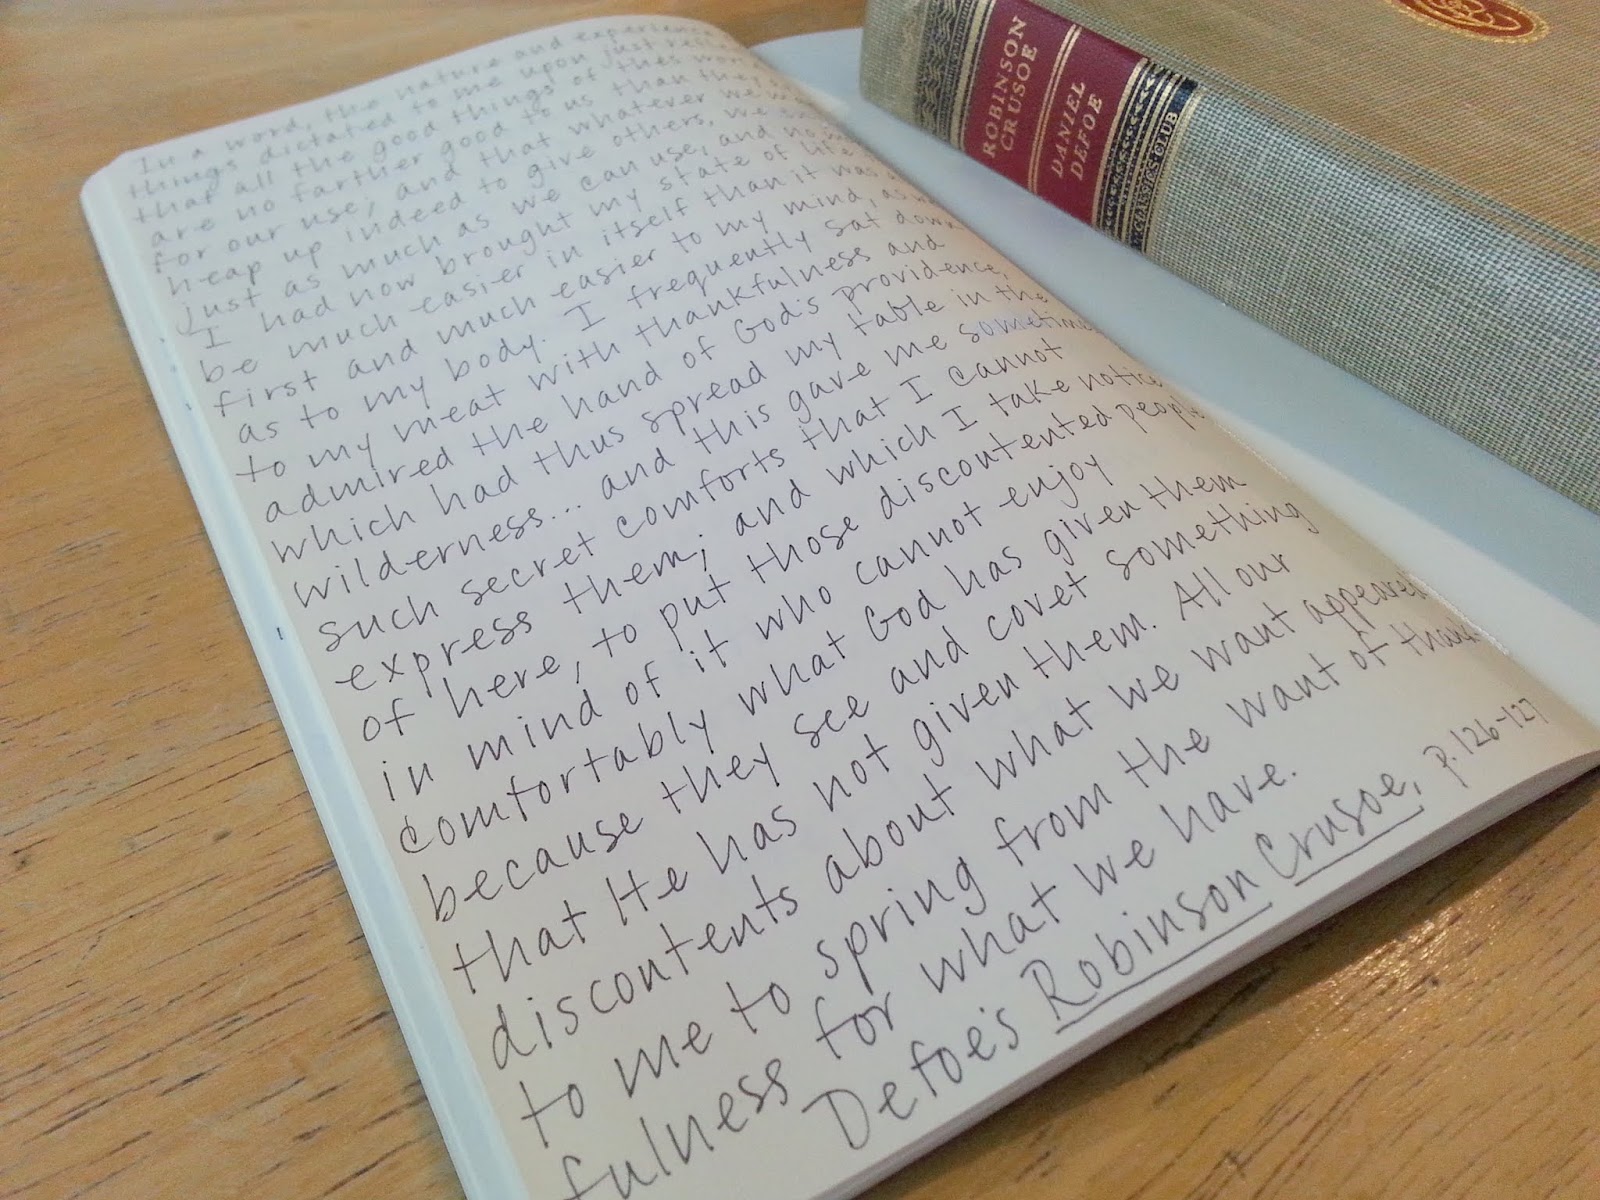 In a word, the nature and experience
things dictated to me upon just
that all the good things of this
are no farther good to us than they
for our use; and that whatever we
heap up indeed to give others, we
just as much as we can use, and no
I had now brought my state of life
be much easier in itself than it was
first and much easier to my mind, as
as to my body. I frequently sat down
to my meat with thankfulness and
admired the hand of God's providence,
which had thus spread my table in the
wilderness... and this gave me sometimes
such secret comforts that I cannot
express them; and which I take notice
of here, to put those discontented people
in mind of it who cannot enjoy
comfortably what God has given them
because they see and covet something
that He has not given them. All our
discontents about what we want appeared
to me to spring from the want of thank-
fulness for what we have.
Defoe's Robinson Crusoe, p. 126-127
ROBINSON
CRUSOE
DANIEL
DEFOE
CLASSICS CLUB